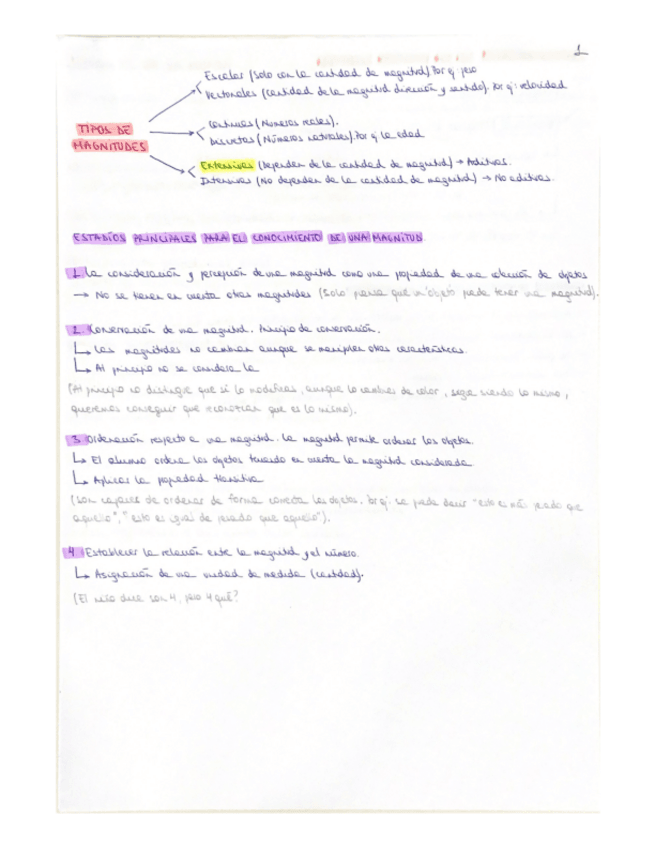 1
Escalar (solo con la cantidad de magnitud) Por ej: peso
Vectoriales (cantidad de la magnitud dirección y sentido). Por ej: velocidad
TIPOS DE
MAGNITUDES
Continuas (Números reales).
Discretas (Números naturales). Por ej la edad
Extensivas (Dependen de la cantidad de magnitud) → Aditivas.
Intensivas (No dependen de la cantidad de magnitud) → No aditivas.
ESTADÍOS PRINCIPALES PARA EL CONOCIMIENTO DE UNA MAGNITUD
1. La consideración y percepción de una magnitud como una propiedad de una colección de objetos
→ No se tienen en cuenta otras magnitudes (Solo piensa que un objeto puede tener una magnitud).
2. Conservación de una magnitud. Principio de conservación.
↳ Las magnitudes no cambian aunque se manipulen otras características.
↳ Al principio no se considera la
(Al principio no distingue que si lo modificas, aunque lo cambies de color, sigue siendo lo mismo,
queremos conseguir que reconozcan que es lo mismo).
3. Ordenación respecto a una magnitud. La magnitud permite ordenar los objetos.
↳ El alumno ordena los objetos teniendo en cuenta la magnitud considerada
↳ Aplicar la propiedad transitiva
(Son capaces de ordenar de forma correcta los objetos. Por ej: se puede decir "esto es más pesado que
aquello", "esto es igual de pesado que aquello").
4. Establecer la relación entre la magnitud y el número.
↳ Asignación de una unidad de medida (cantidad).
(El niño dice son 4, pero 4 qué?